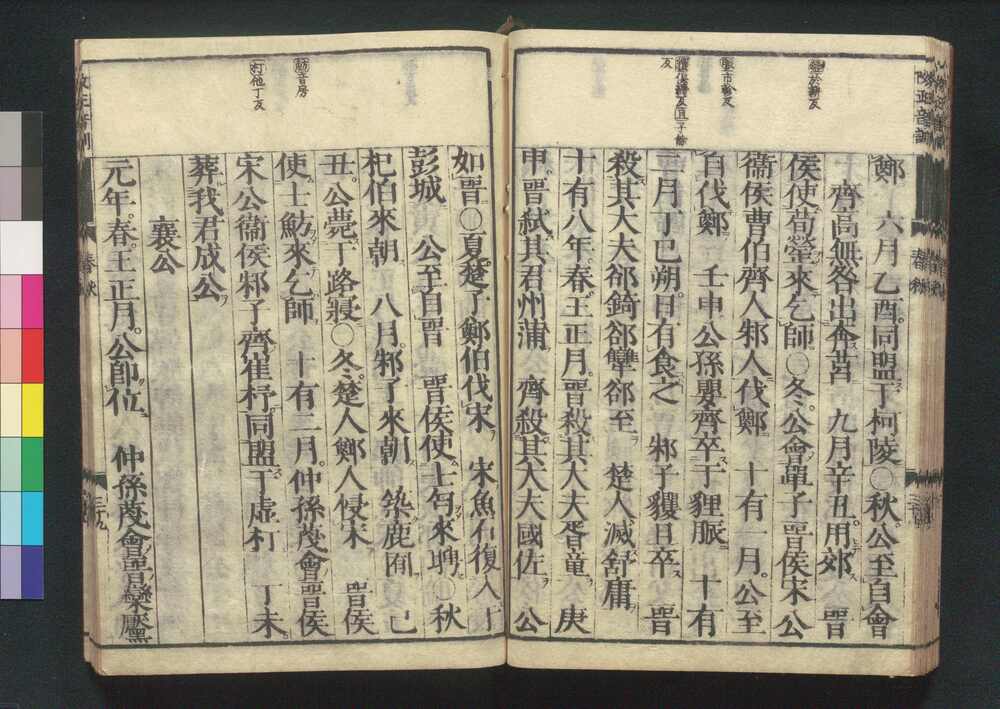 鄭　六月乙酉同盟于柯陵〇秋公至自會
齊高無咎出奔莒　九月辛丑用郊　晉
侯使荀罃來乞師〇冬公會單子晉侯宋公
衞侯曹伯齊人邾人伐鄭　十有一月公至
自伐鄭　壬申公孫嬰齊卒于貍脤　十有
二月丁巳朔日有食之　邾子貜且卒　晉
殺其大夫郤錡郤犨郤至　楚人滅舒庸
十有八年春王正月晉殺其大夫胥童　庚
申晉弑其君州蒲　齊殺其大夫國佐　公
如晉〇夏楚子鄭伯伐宋　宋魚石復入于
彭城　公至自晉　晉侯使士匄來聘〇秋
杞伯來朝　八月邾子來朝　築鹿囿　己
丑公薨于路寢〇冬楚人鄭人侵宋　晉侯
使士魴來乞師　十有二月仲孫蔑會晉侯
宋公衞侯邾子齊崔杼同盟于虛朾　丁未
葬我君成公
襄公
元年春王正月公卽位　仲孫蔑會晉欒黶
罃於耕反
脤市軫反
貜俱縛反且子餘
反
魴音房
朾他丁反
春秋
三十九